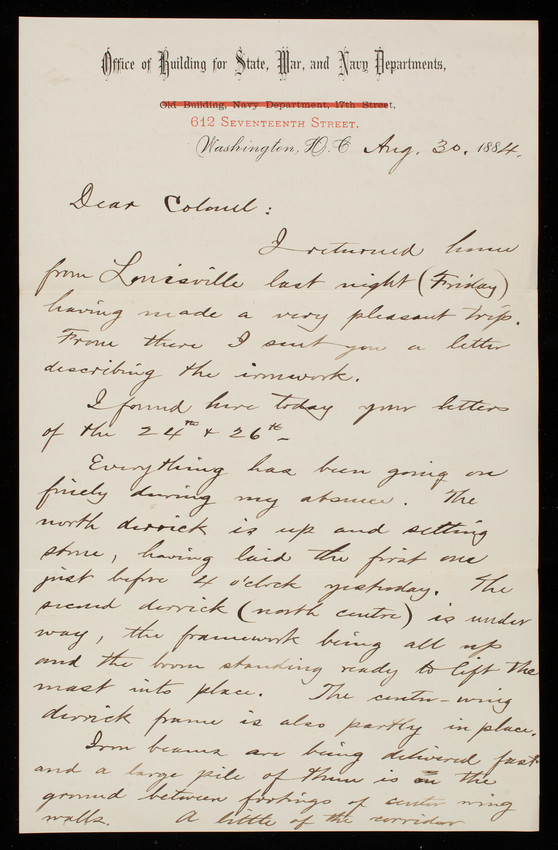 Office of Building for State, War, and Navy Departments,
Old Building, Navy Department, 17th Street,
612 Seventeenth Street.
Washington, D.C. Aug. 30. 1884.
Dear Colonel:
I returned home
from Louisville last night (Friday)
having made a very pleasant trip.
From there I sent you a letter
describing the ironwork.
I found here today your letters
of the 24th & 26th –
Everything has been going on
finely during my absence. The
north derrick is up and setting
stone, having laid the first one
just before 4 o'clock yesterday. The
second derrick (north centre) is under
way, the framework being all up
and the boom standing ready to lift the
mast into place. The center-wing
derrick frame is also partly in place.
Iron beams are being delivered fast
and a large pile of them is on the
ground between footings of center wing
walls. A little of the corridor